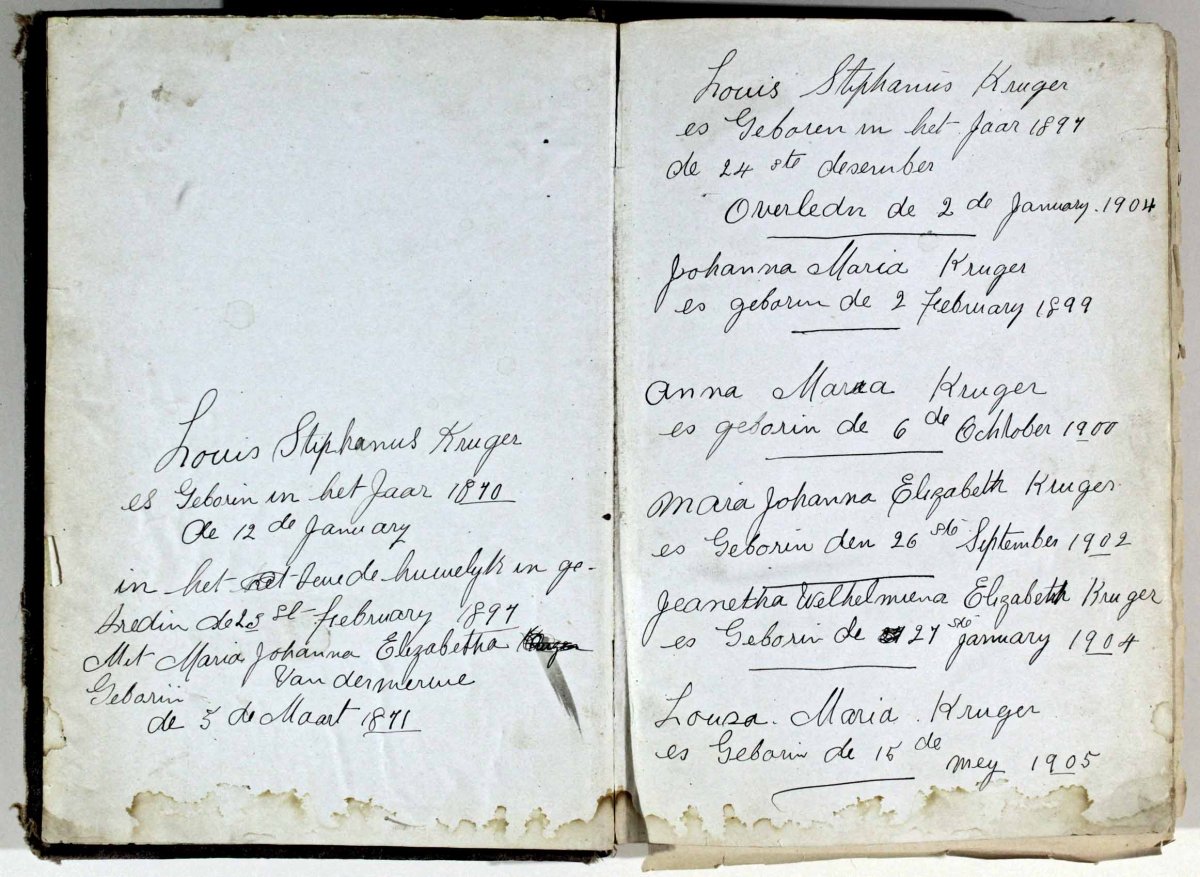 Louis Stiphanus Kruger
es Geborin in het Jaar 1870
de 12 de January
in het huwelyk in ge-
tredin de 23 st February 1897
Met Maria Johanna Elizabetha
Van dermerwe
Geborin
de 3 de Maart 1871
Louis Stiphanus Kruger
es Geboren in het Jaar 1897
de 24 ste desember
Overledn de 2 de January. 1904
Johanna Maria Kruger
es geborin de 2 February 1899
Anna Maria Kruger
es geborin de 6 de Ochtober 1900
Maria Johanna Elizabeth Kruger
es Geborin den 26 ste September 1902
Jeanetha Welhelmiena Elizabeth Kruger
es Geborin de 27 ste January 1904
Louza. Maria. Kruger
es Geborin de 15 de mey 1905